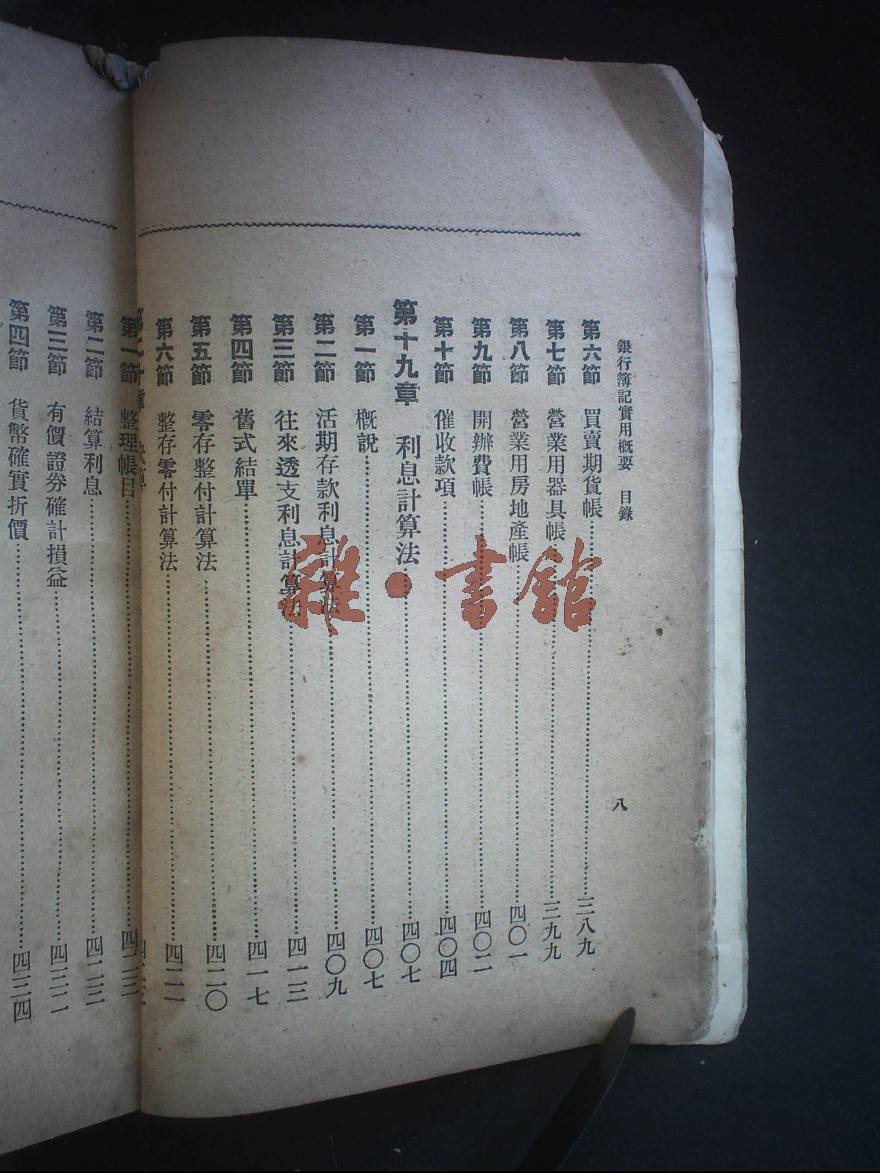 銀行簿記實用概要 目錄
八
第六節 買賣期貨帳……三八九
第七節 營業用器具帳……三九九
第八節 營業用房地產帳……四〇一
第九節 開辦費帳……四〇二
第十節 催收款項……四〇四
第十九章 利息計算法……四〇七
第一節 概說……四〇七
第二節 活期存款利息計算法……四〇九
第三節 往來透支利息計算法……四一三
第四節 舊式結單……四一七
第五節 零存整付計算法……四二〇
第六節 整存零付計算法……四二二
第一節 整理帳目……四二三
第二節 結算利息……四二三
第三節 有價證券確計損益……四三二
第四節 貨幣確實折價……四三四
雜·書館